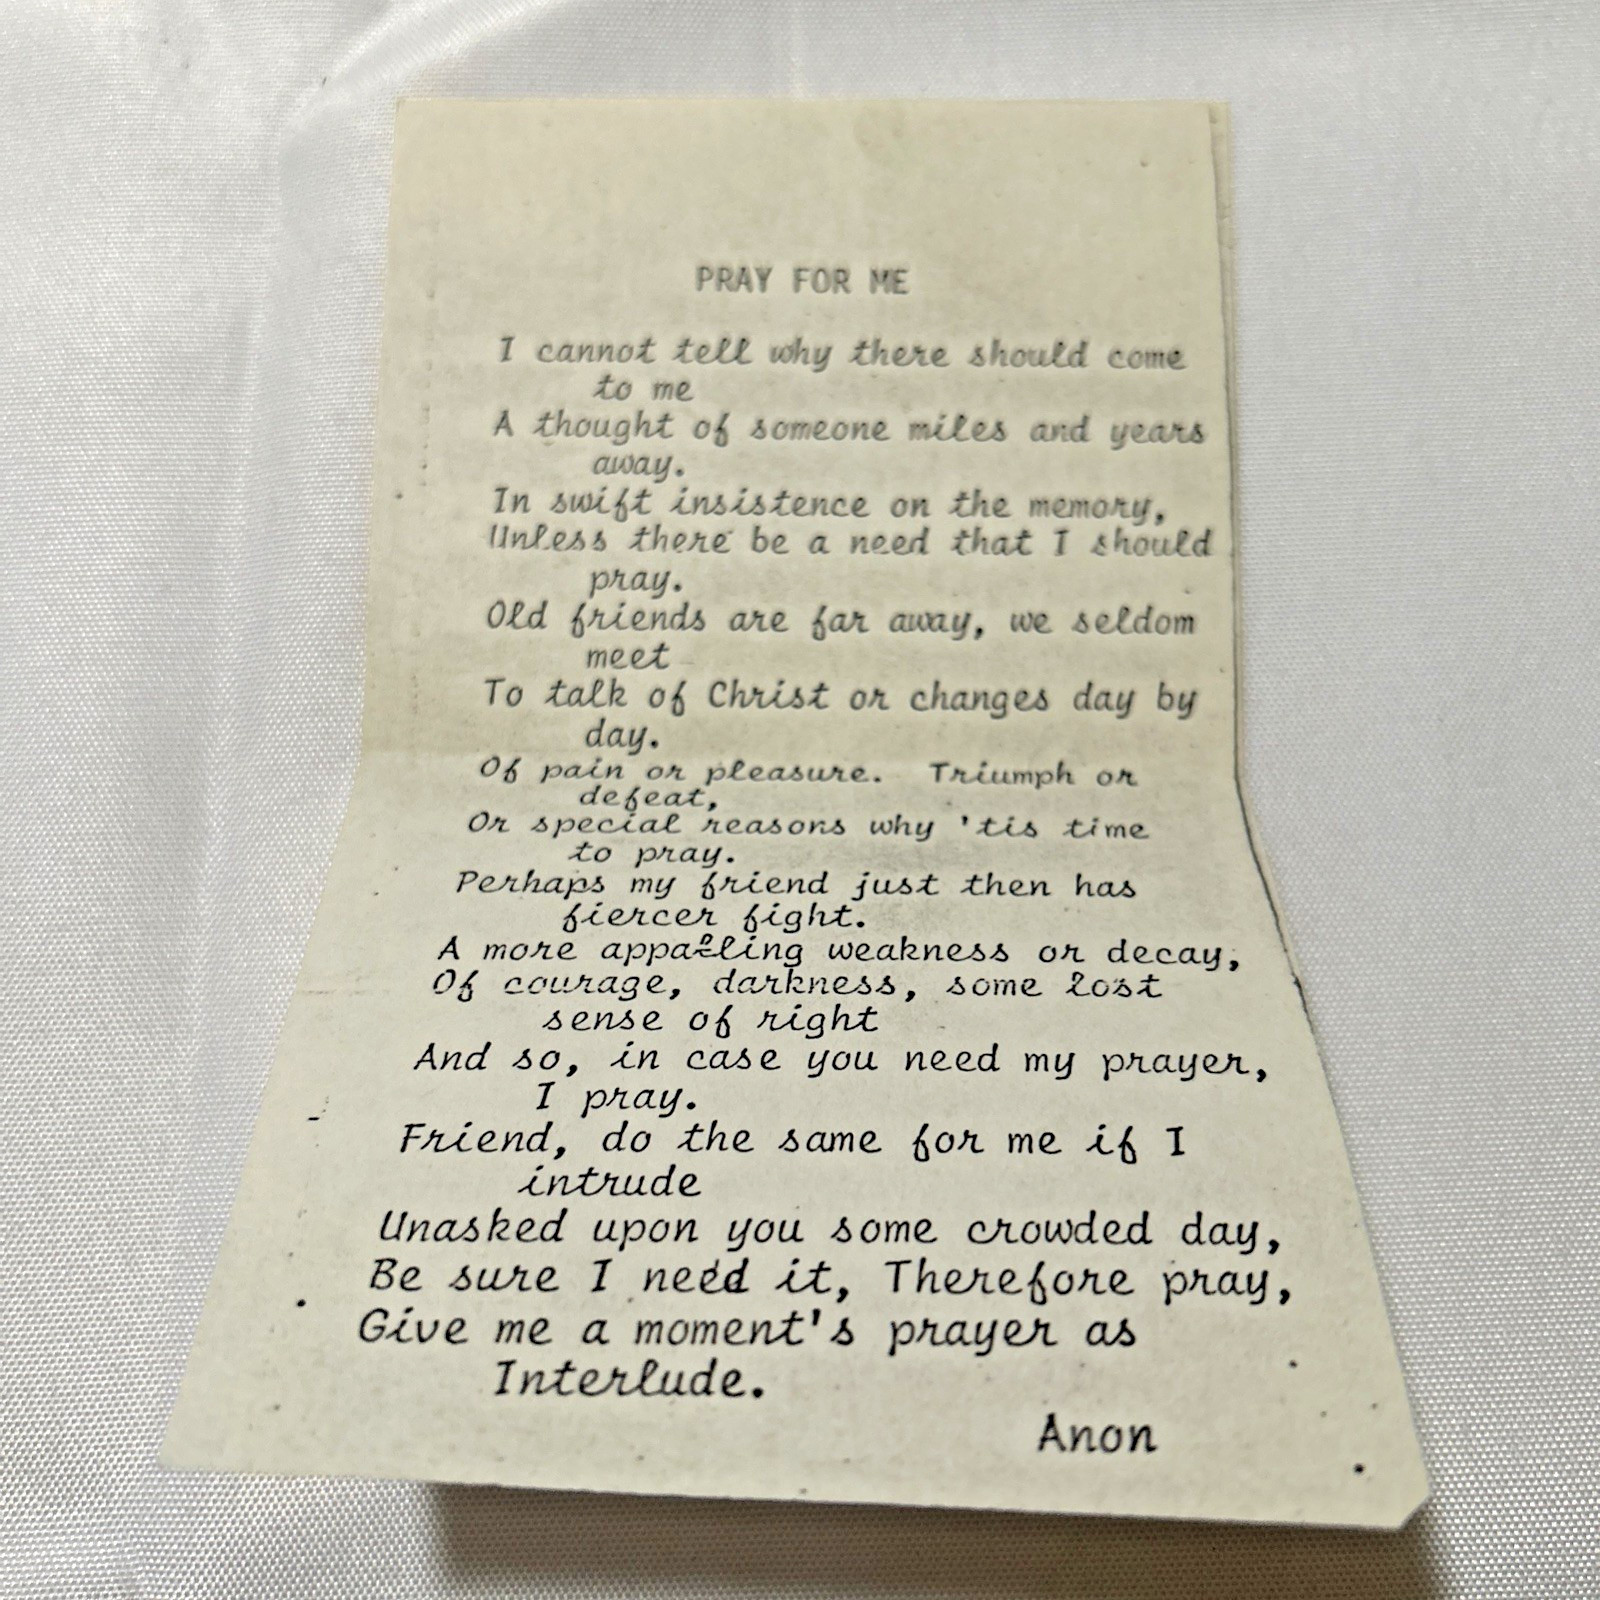 PRAY FOR ME
I cannot tell why there should come
to me
A thought of someone miles and years
away.
In swift insistence on the memory,
Unless there be a need that I should
pray.
Old friends are far away, we seldom
meet
To talk of Christ or changes day by
day.
Of pain or pleasure. Triumph or
defeat,
Or special reasons why 'tis time
to pray.
Perhaps my friend just then has
fiercer fight.
A more appalling weakness or decay,
Of courage, darkness, some lost
sense of right
And so, in case you need my prayer,
I pray.
Friend, do the same for me if I
intrude
Unasked upon you some crowded day,
Be sure I need it, Therefore pray,
Give me a moment's prayer as
Interlude.
Anon